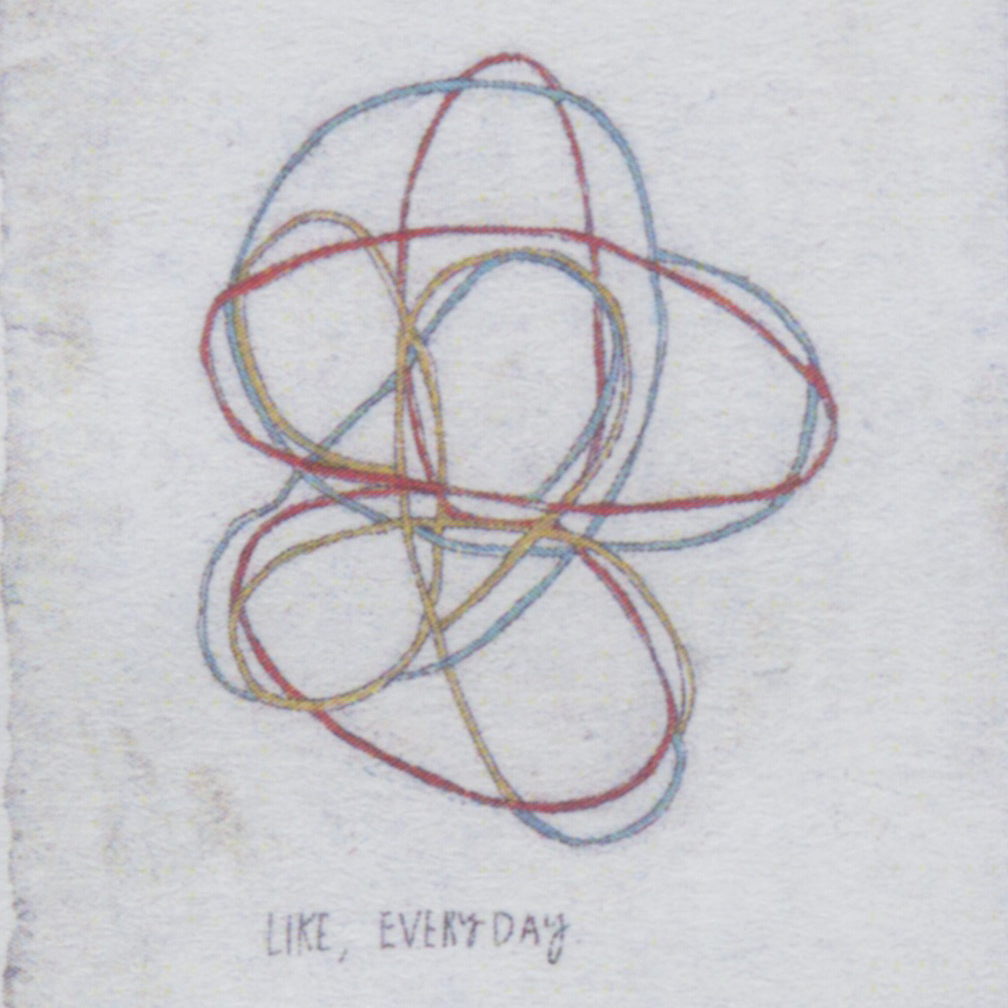 LIKE, EVERYDAY.